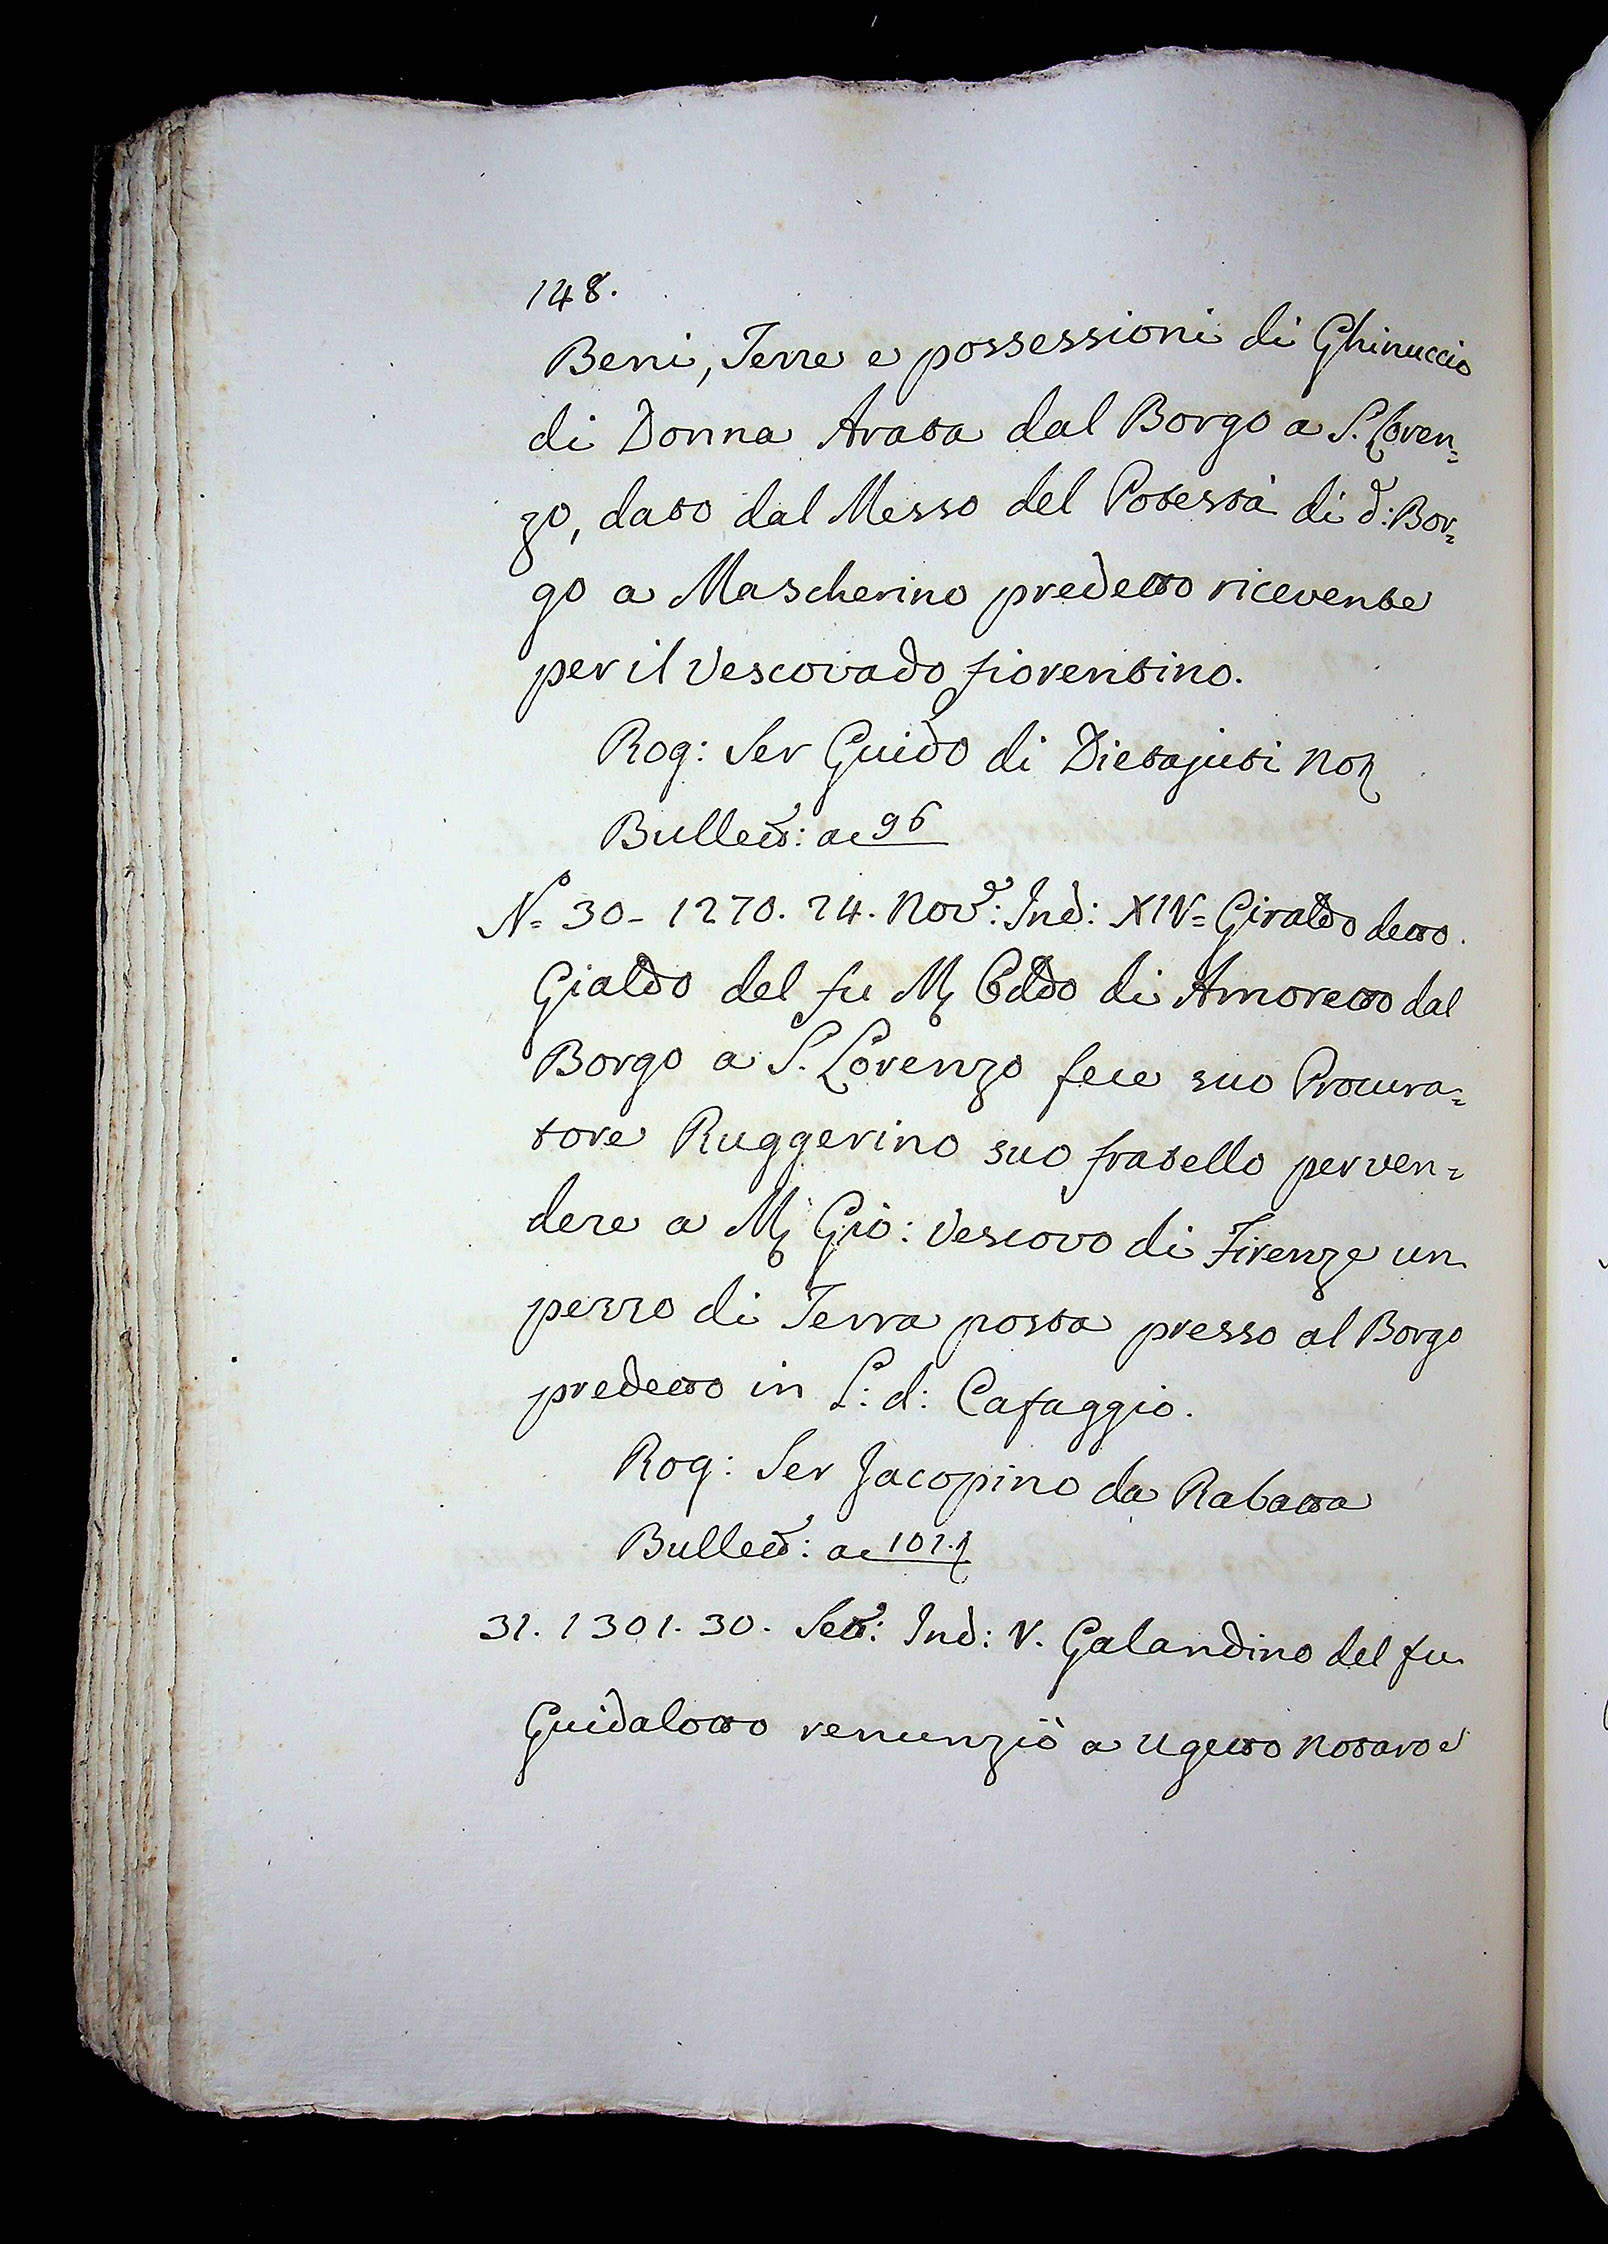 148.
Beni, Terre e possessioni di Ghinuccio
di Donna Arata dal Borgo a S. Loren=
zo, dato dal Messo del Potestà di d: Bor=
go a Mascherino predetto ricevente
per il Vescovado fiorentino.
Rog: Ser Guido di Dietajuti Not
Bullett: ac 96
N= 30 - 1270. 24. Nov: Ind: XIV= Giraldo detto
Gialdo del fu M Oddo di Amoretto dal
Borgo a S. Lorenzo fece suo Procura=
tore Ruggerino suo fratello per ven=
dere a M Gio: Vescovo di Firenze un
pezzo di Terra posta presso al Borgo
predetto in L: d: Cafaggio.
Rog: Ser Jacopino da Rabatta
Bullett: ac 101.
31. 1301. 30. Sett: Ind: V. Galandino del fu
Guidalotto renunziò a Ugetto Notaro e